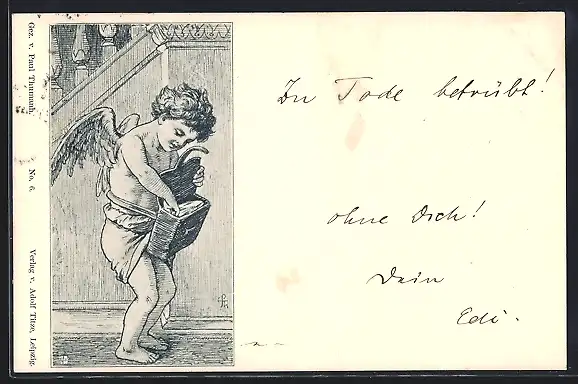 Gez. v. Paul Thumann.
No. 6.
Verlag v. Adolf Titze, Leipzig.
Zu Tode betrübt!
ohne Dich!
Dein
Edi.